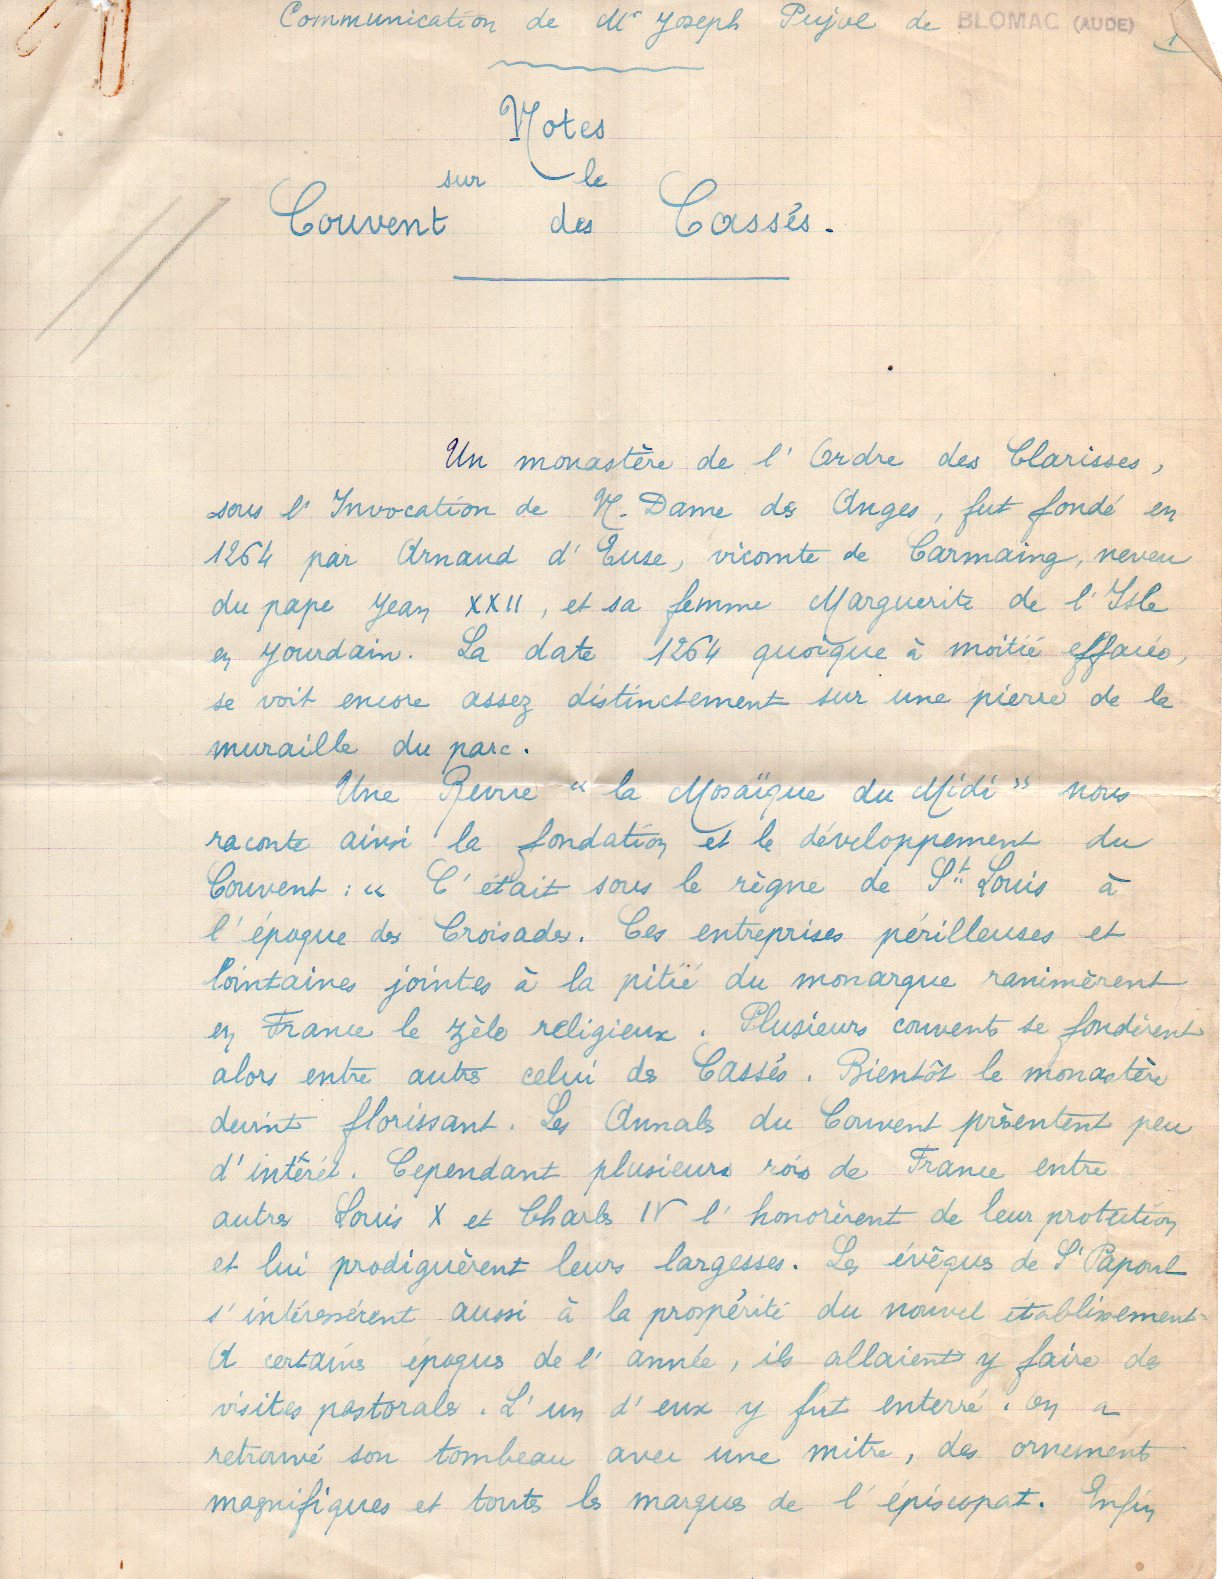 Communication de Mr Joseph Pujol de BLOMAC (AUDE) 1
Notes
sur le
Couvent des Cassés.
Un monastère de l'Ordre des Clarisses,
sous l'Invocation de N. Dame des Anges, fut fondé en
1264 par Arnaud d'Euse, vicomte de Carmaing, neveu
du pape Jean XXII, et sa femme Marguerite de l'Isle
en Jourdain. La date 1264 quoique à moitié effacée,
se voit encore assez distinctement sur une pierre de la
muraille du parc.
Une Revue "la Mosaïque du Midi" nous
raconte ainsi la fondation et le développement du
Couvent : " C'était sous le règne de St Louis à
l'époque des Croisades. Ces entreprises périlleuses et
lointaines jointes à la pitié du monarque ranimèrent
en France le zèle religieux. Plusieurs couvents se fondèrent
alors entre autres celui des Cassés. Bientôt le monastère
devint florissant. Les Annales du Couvent présentent peu
d'intérêt. Cependant plusieurs rois de France entre
autres Louis X et Charles IV l'honorèrent de leur protection
et lui prodiguèrent leurs largesses. Les évêques de St Papoul
s'intéressèrent aussi à la prospérité du nouvel établissement.
A certaines époques de l'année, ils allaient y faire des
visites pastorales. L'un d'eux y fut enterré. on a
retrouvé son tombeau avec une mitre, des ornements
magnifiques et toutes les marques de l'épiscopat. Enfin